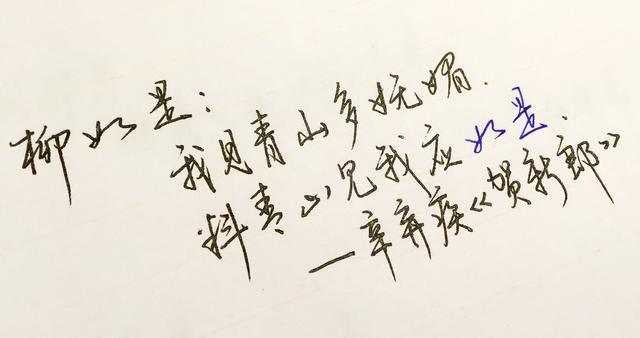 柳如是:
我见青山多妩媚.
料青山见我应如是.
—辛弃疾《贺新郎》